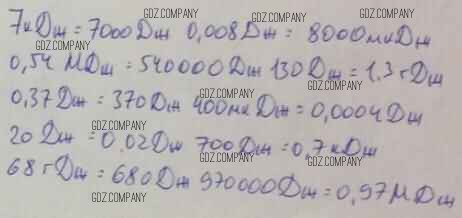 7кДж = 7000Дж 0,008Дж = 8000мкДж
GDZ.COMPANY GDZ.COMPANY
GDZ.COMPANY GDZ.COMPANY
0,54 МДж = 540000Дж 130Дж = 1,3гДж
GDZ.COMPANY GDZ.COMPANY
0,37Дж = 370Дж 400мкДж = 0,0004Дж
GDZ.COMPANY GDZ.COMPANY
20Дж = 0,02Дж 700Дж = 0,7кДж
GDZ.COMPANY GDZ.COMPANY
68гДж = 680Дж 970000Дж = 0,97МДж
GDZ.COMPANY GDZ.COMPANY